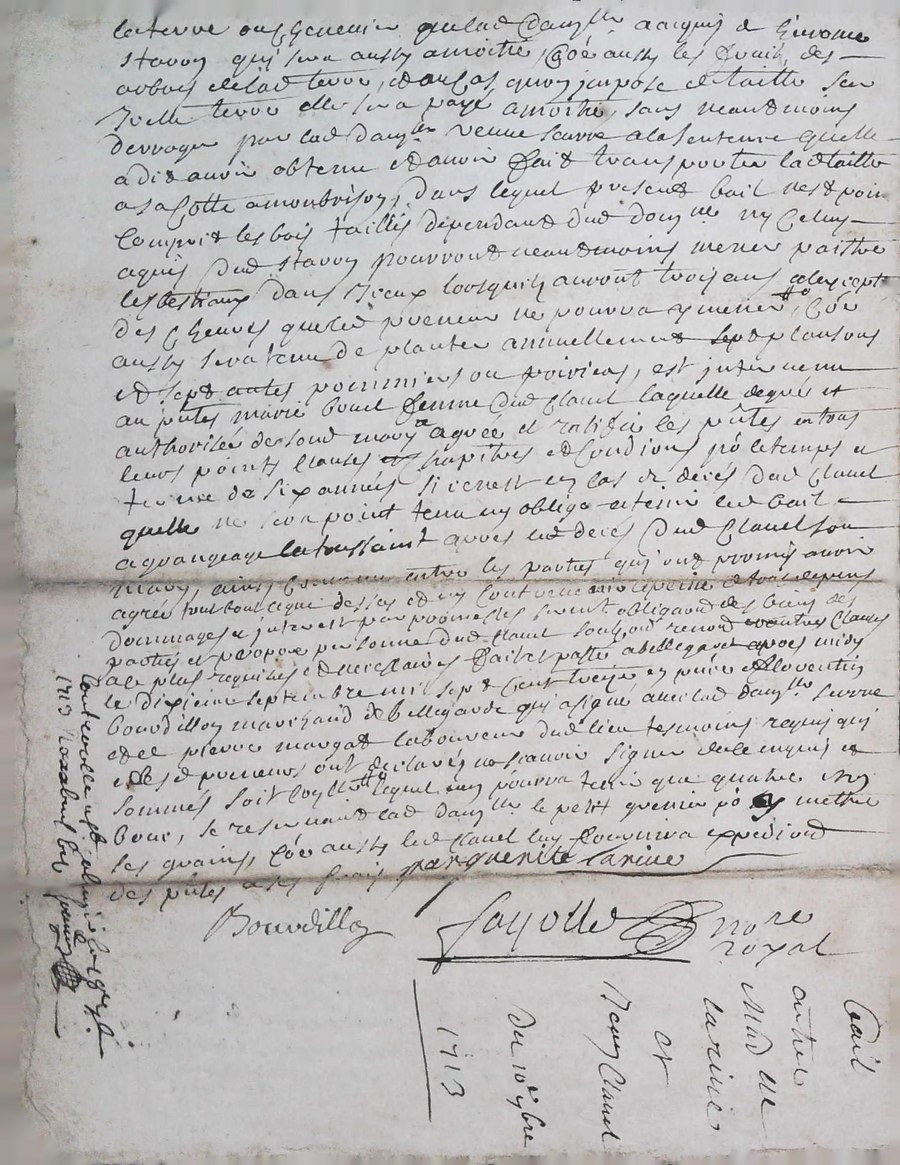 la terre ou genevier que lad dam^lle a acquis de Gerome
Starvoy qui sera aussy a moitié, Còe aussy les fruits des
arbres de lad terre, et au cas quon jmpose de taille sur
jcelle terre elle sera payé a moitié, sans neantmoins
derroger par lad dam^lle venue Larue a la sentence quelle
a dit avoir obtenu et avoir fait transporter lad taille
a sa Cotte a montbrison, dans lequel present bail nest poin
Compris les bois taillés dependant dud dom^ne ny Celuy
aquis dud Starvoy pourront neantmoins mener paitre
les bestiaux dans jceux lorsquils auront trois ans a lexcept^o
des Chevres que led preneur ne pourra y mener, Còe
aussy sera tenu de planter annuellement sept plansons
et sept autres pommiers ou poiriers, est jntervenu
au pñtes marie femme dud Claud laquelle degré et
authorisée de sond mary a agréé et ratiffié les pñtes en tous
leurs points Clauses Chapitres et Condions po^r le temps et
terme de six années si ce nest en cas de decés dud Claud
quelle ne sera point tenu ny obligé a tenir led bail
a grangeage la toussaint apres led deces dud Claud son
mary, ainsy Convenu entre les parties qui ont promis avoir
agreé tout ce que dessus et ny Contrevenir a peine de tous depens
dommages et jnterest par promesses serment obligaod des biens des
parties et propre personne dud Claud renod Clauses
a ce plus requises et necessaires fait et passé a bellegarde apres midy
le dixieme septembre mil sept Cent treize en pñce de florentin
bourdillon marchand de bellegarde qui a signé avec lad dam^lle Larue
et de pierre margat laboureur dud lieu tesmoins requis qui
et led preneurs ont declarés ne scavoir signer de ce enquis et
sommés soit lequel ny pourra tenir que quatre
bouc, se reservant lad dam^lle le petit grenier po^r y mettre
ses grains, Còe aussy led Claud luy fournira expediond
des pñtes a ses frais Marguerite Larue
Bourdillon
Fayolle no^re
royal
Controllé
1713
Bail
entre
Mad^lle
Larue
et
Claud
Du 10^e 7bre
1713